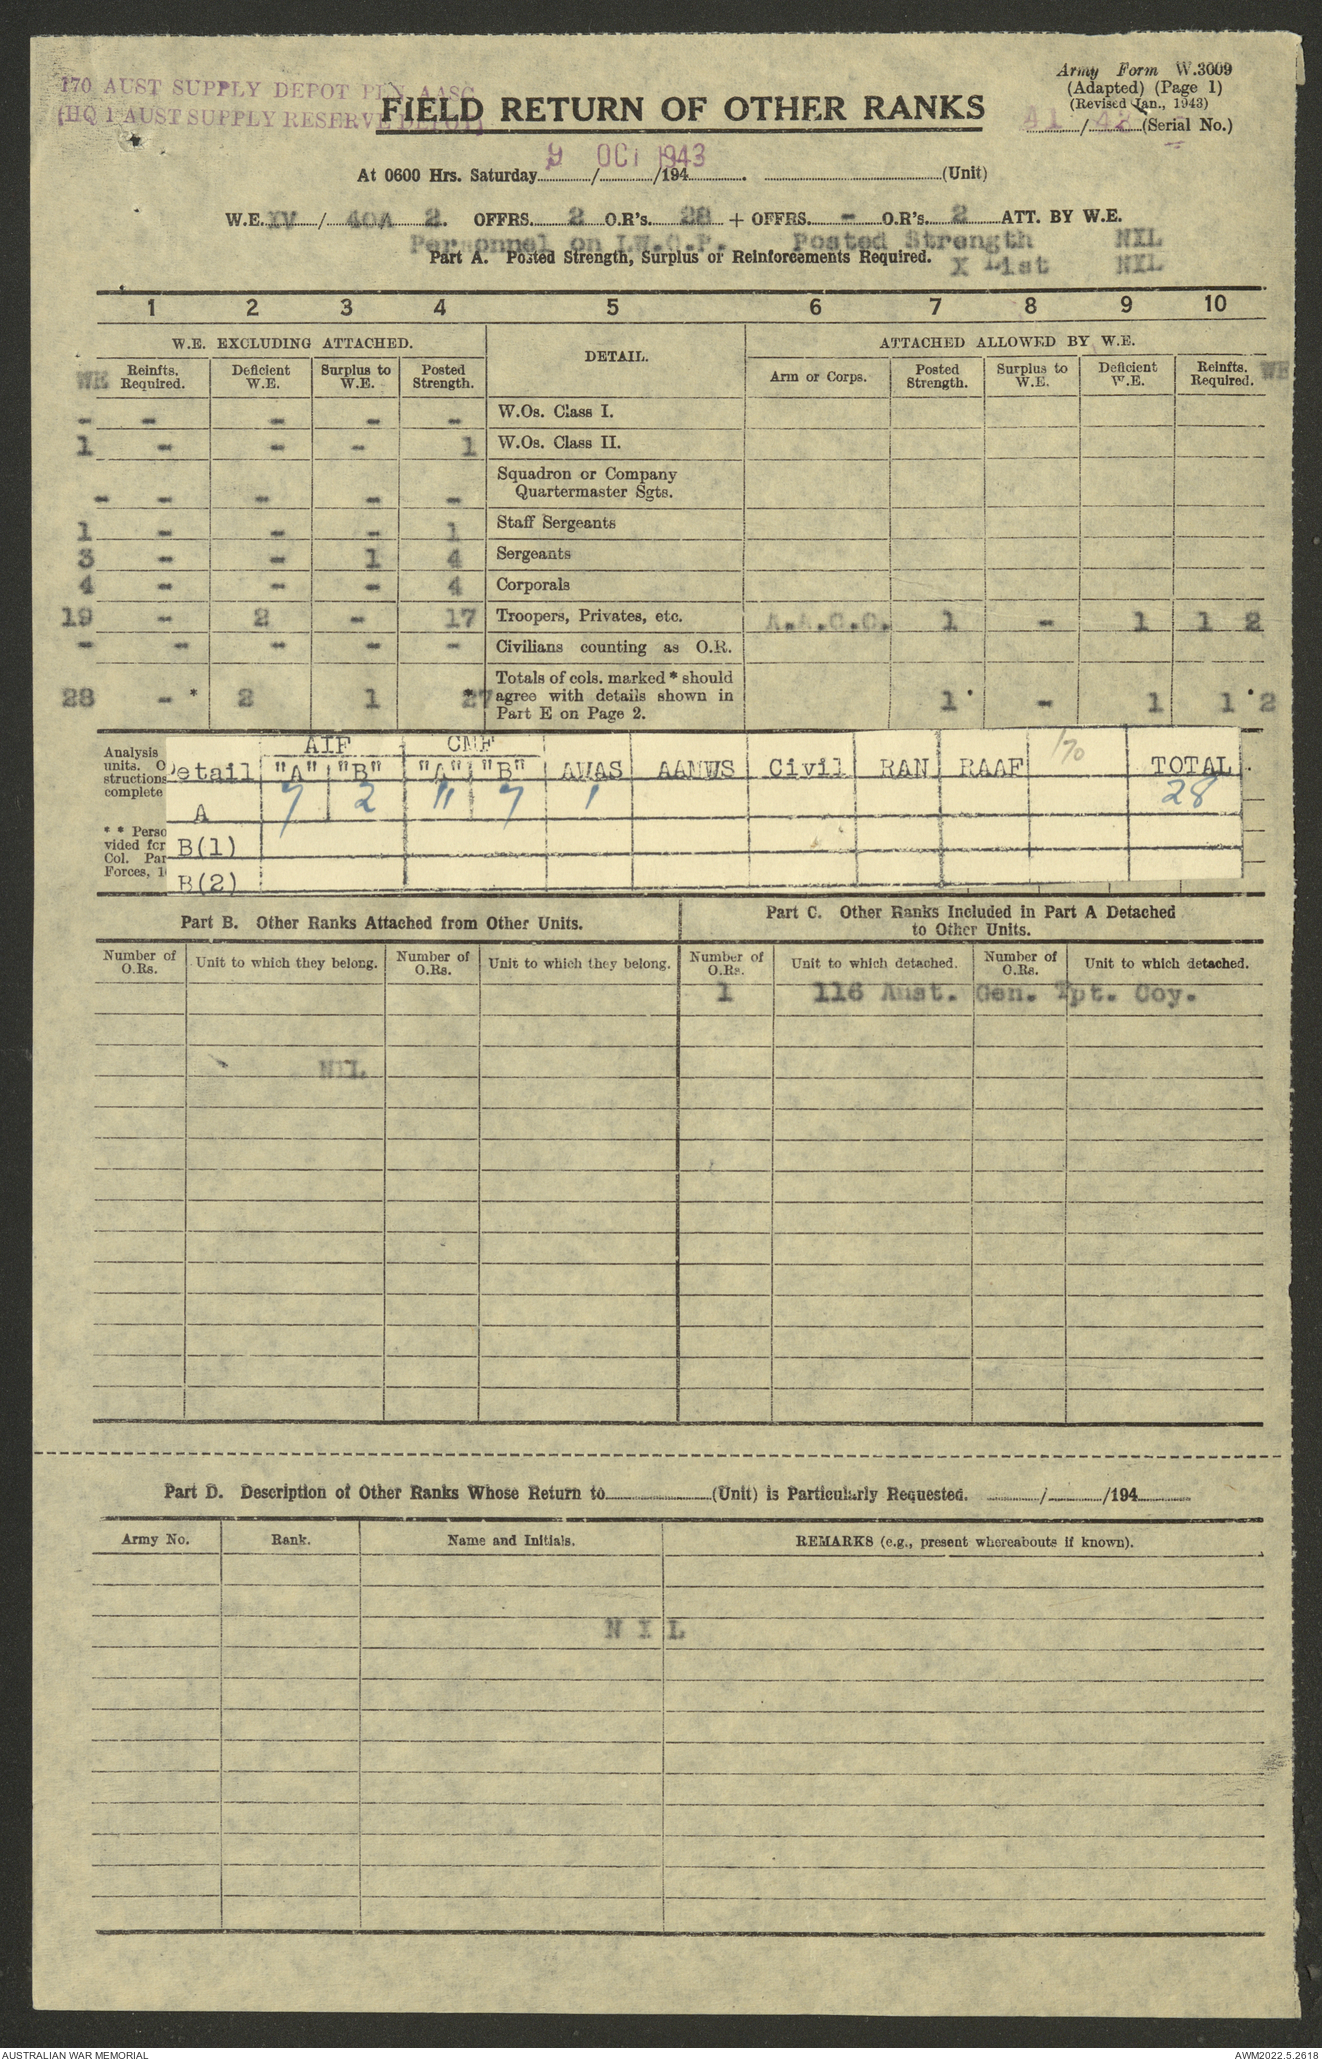 170 AUST SUPPLY DEPOT PLN AASC
(HQ 1 AUST SUPPLY RESERVE DEPOT)
Army Form W.3009
(Adapted) (Page 1)
(Revised Jan., 1943)
41 / 42 (Serial No.)
FIELD RETURN OF OTHER RANKS
9 OCT 1943
At 0600 Hrs. Saturday............/............/194............ ............(Unit)
W.E. IV / 40A 2. OFFRS. 2 O.R's. 28 + OFFRS. - O.R's. 2 ATT. BY W.E.
Personnel on L.W.O.P. Posted Strength NIL
Part A. Posted Strength, Surplus or Reinforcements Required.
X List NIL
1 2 3 4 5 6 7 8 9 10
W.E. EXCLUDING ATTACHED. DETAIL. ATTACHED ALLOWED BY W.E.
WE Reinfts. Required. Deficient W.E. Surplus to W.E. Posted Strength. Arm or Corps. Posted Strength. Surplus to W.E. Deficient W.E. Reinfts. Required. WE
- - - - - W.Os. Class I.
1 - - - 1 W.Os. Class II.
- - - - - Squadron or Company Quartermaster Sgts.
1 - - - 1 Staff Sergeants
3 - - 1 4 Sergeants
4 - - - 4 Corporals
19 - 2 - 17 Troopers, Privates, etc. A.A.C.C. 1 - 1 1 2
- - - - - Civilians counting as O.R.
28 - * 2 1 * 27 Totals of cols. marked * should agree with details shown in Part E on Page 2. 1 * - 1 1 * 2
Analysis
units. O
structions
complete
* * Perso
vided for
Col. Par
Forces, 1
AIF CMF 170
Detail "A" "B" "A" "B" AWAS AAMWS Civil RAN RAAF TOTAL
A 7 2 11 7 1 28
B(1)
B(2)
Part B. Other Ranks Attached from Other Units.
Part C. Other Ranks Included in Part A Detached
to Other Units.
Number of O.Rs. Unit to which they belong. Number of O.Rs. Unit to which they belong. Number of O.Rs. Unit to which detached. Number of O.Rs. Unit to which detached.
1 116 Aust. Gen. Tpt. Coy.
NIL
Part D. Description of Other Ranks Whose Return to............(Unit) is Particularly Requested. ............/............/194............
Army No. Rank. Name and Initials. REMARKS (e.g., present whereabouts if known).
N I L
AUSTRALIAN WAR MEMORIAL
AWM2022.5.2618